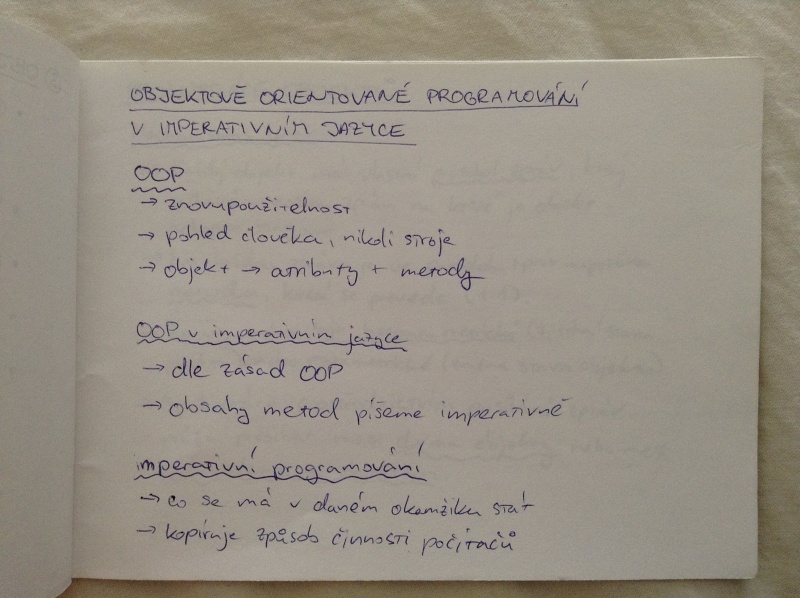 OBJEKTOVĚ ORIENTOVANÉ PROGRAMOVÁNÍ
V IMPERATIVNÍM JAZYCE
OOP
→ znovupoužitelnost
→ pohled člověka, nikoli stroje
→ objekt → atributy + metody
OOP v imperativním jazyce
→ dle zásad OOP
→ obsahy metod píšeme imperativně
imperativní programování
→ co se má v daném okamžiku stát
→ kopíruje způsob činnosti počítačů